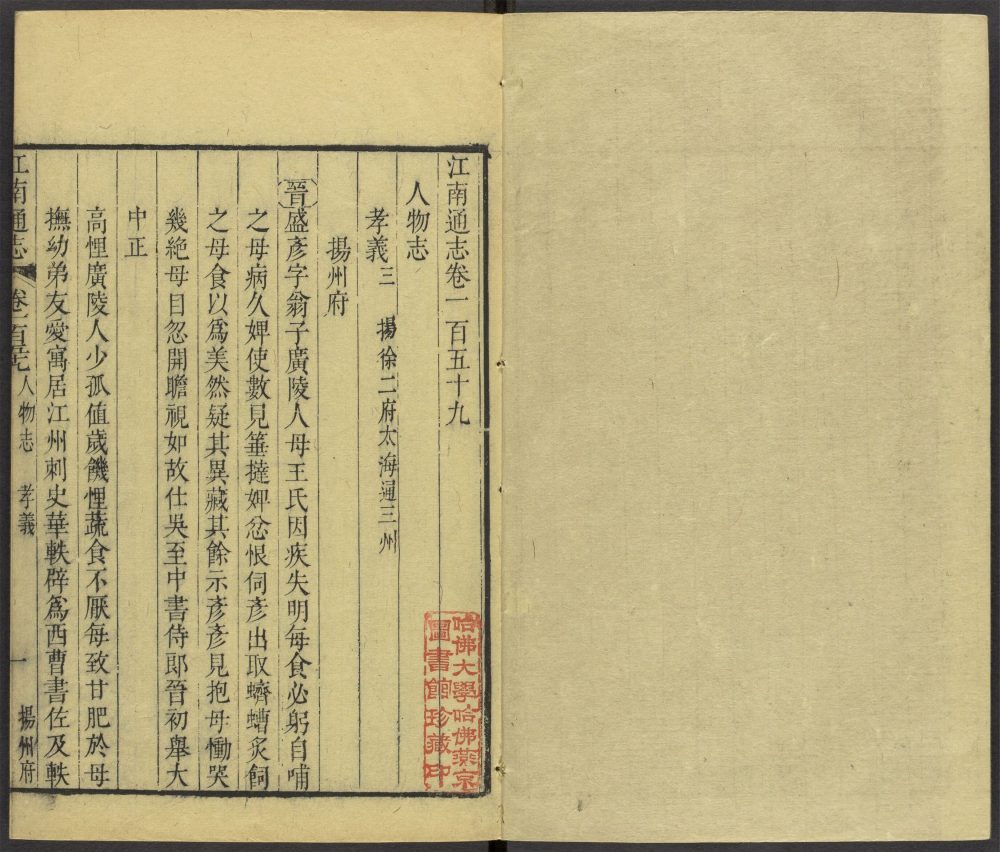 江南通志卷一百五十九
人物志
孝義三 揚徐二府太海通三州
揚州府
晉盛彥字翁子廣陵人母王氏因疾失明每食必躬自哺
之母病久婢使數見箠撻婢忿恨伺彥出取蠐螬炙飼
之母食以爲美然疑其異藏其餘示彥彥見抱母慟哭
幾絶母目忽開瞻視如故仕吳至中書侍郎晉初舉大
中正
高悝廣陵人少孤值歲饑悝蔬食不厭每致甘肥於母
撫幼弟友愛寓居江州刺史華軼辟爲西曹書佐及軼
江南通志 卷一百 人物志 孝義 一 揚州府
哈佛大學哈佛燕京
圖書館珍藏印